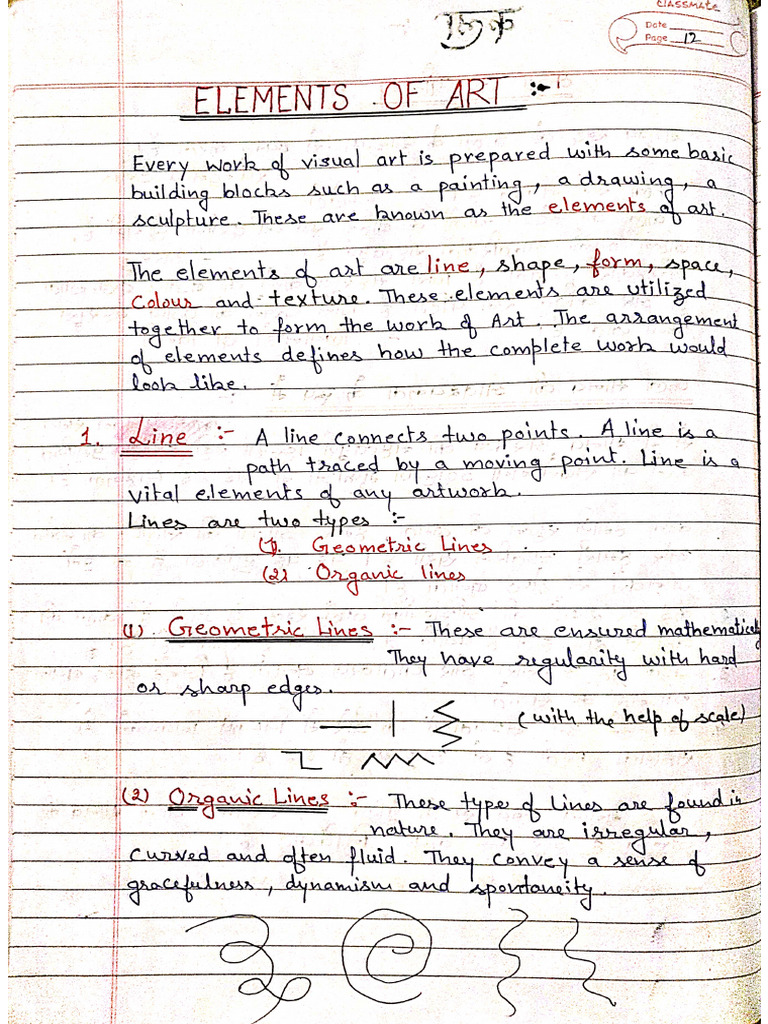 classmate
Date
Page 12
ELEMENTS OF ART :-
Every work of visual art is prepared with some basic
building blocks such as a painting, a drawing, a
sculpture. These are known as the elements of art.
The elements of art are line, shape, form, space,
Colour and texture. These elements are utilized
together to form the work of Art. The arrangement
of elements defines how the complete work would
look like.
1. Line :- A line connects two points. A line is a
path traced by a moving point. Line is a
vital elements of any artwork.
Lines are two types :-
(1). Geometric Lines
(2) Organic lines
(1) Geometric Lines :- These are ensured mathematically
They have regularity with hard
or sharp edges.
(with the help of scale)
(2) Organic Lines :- These type of lines are found in
nature. They are irregular,
curved and often fluid. They convey a sense of
gracefulness, dynamism and spontaneity.